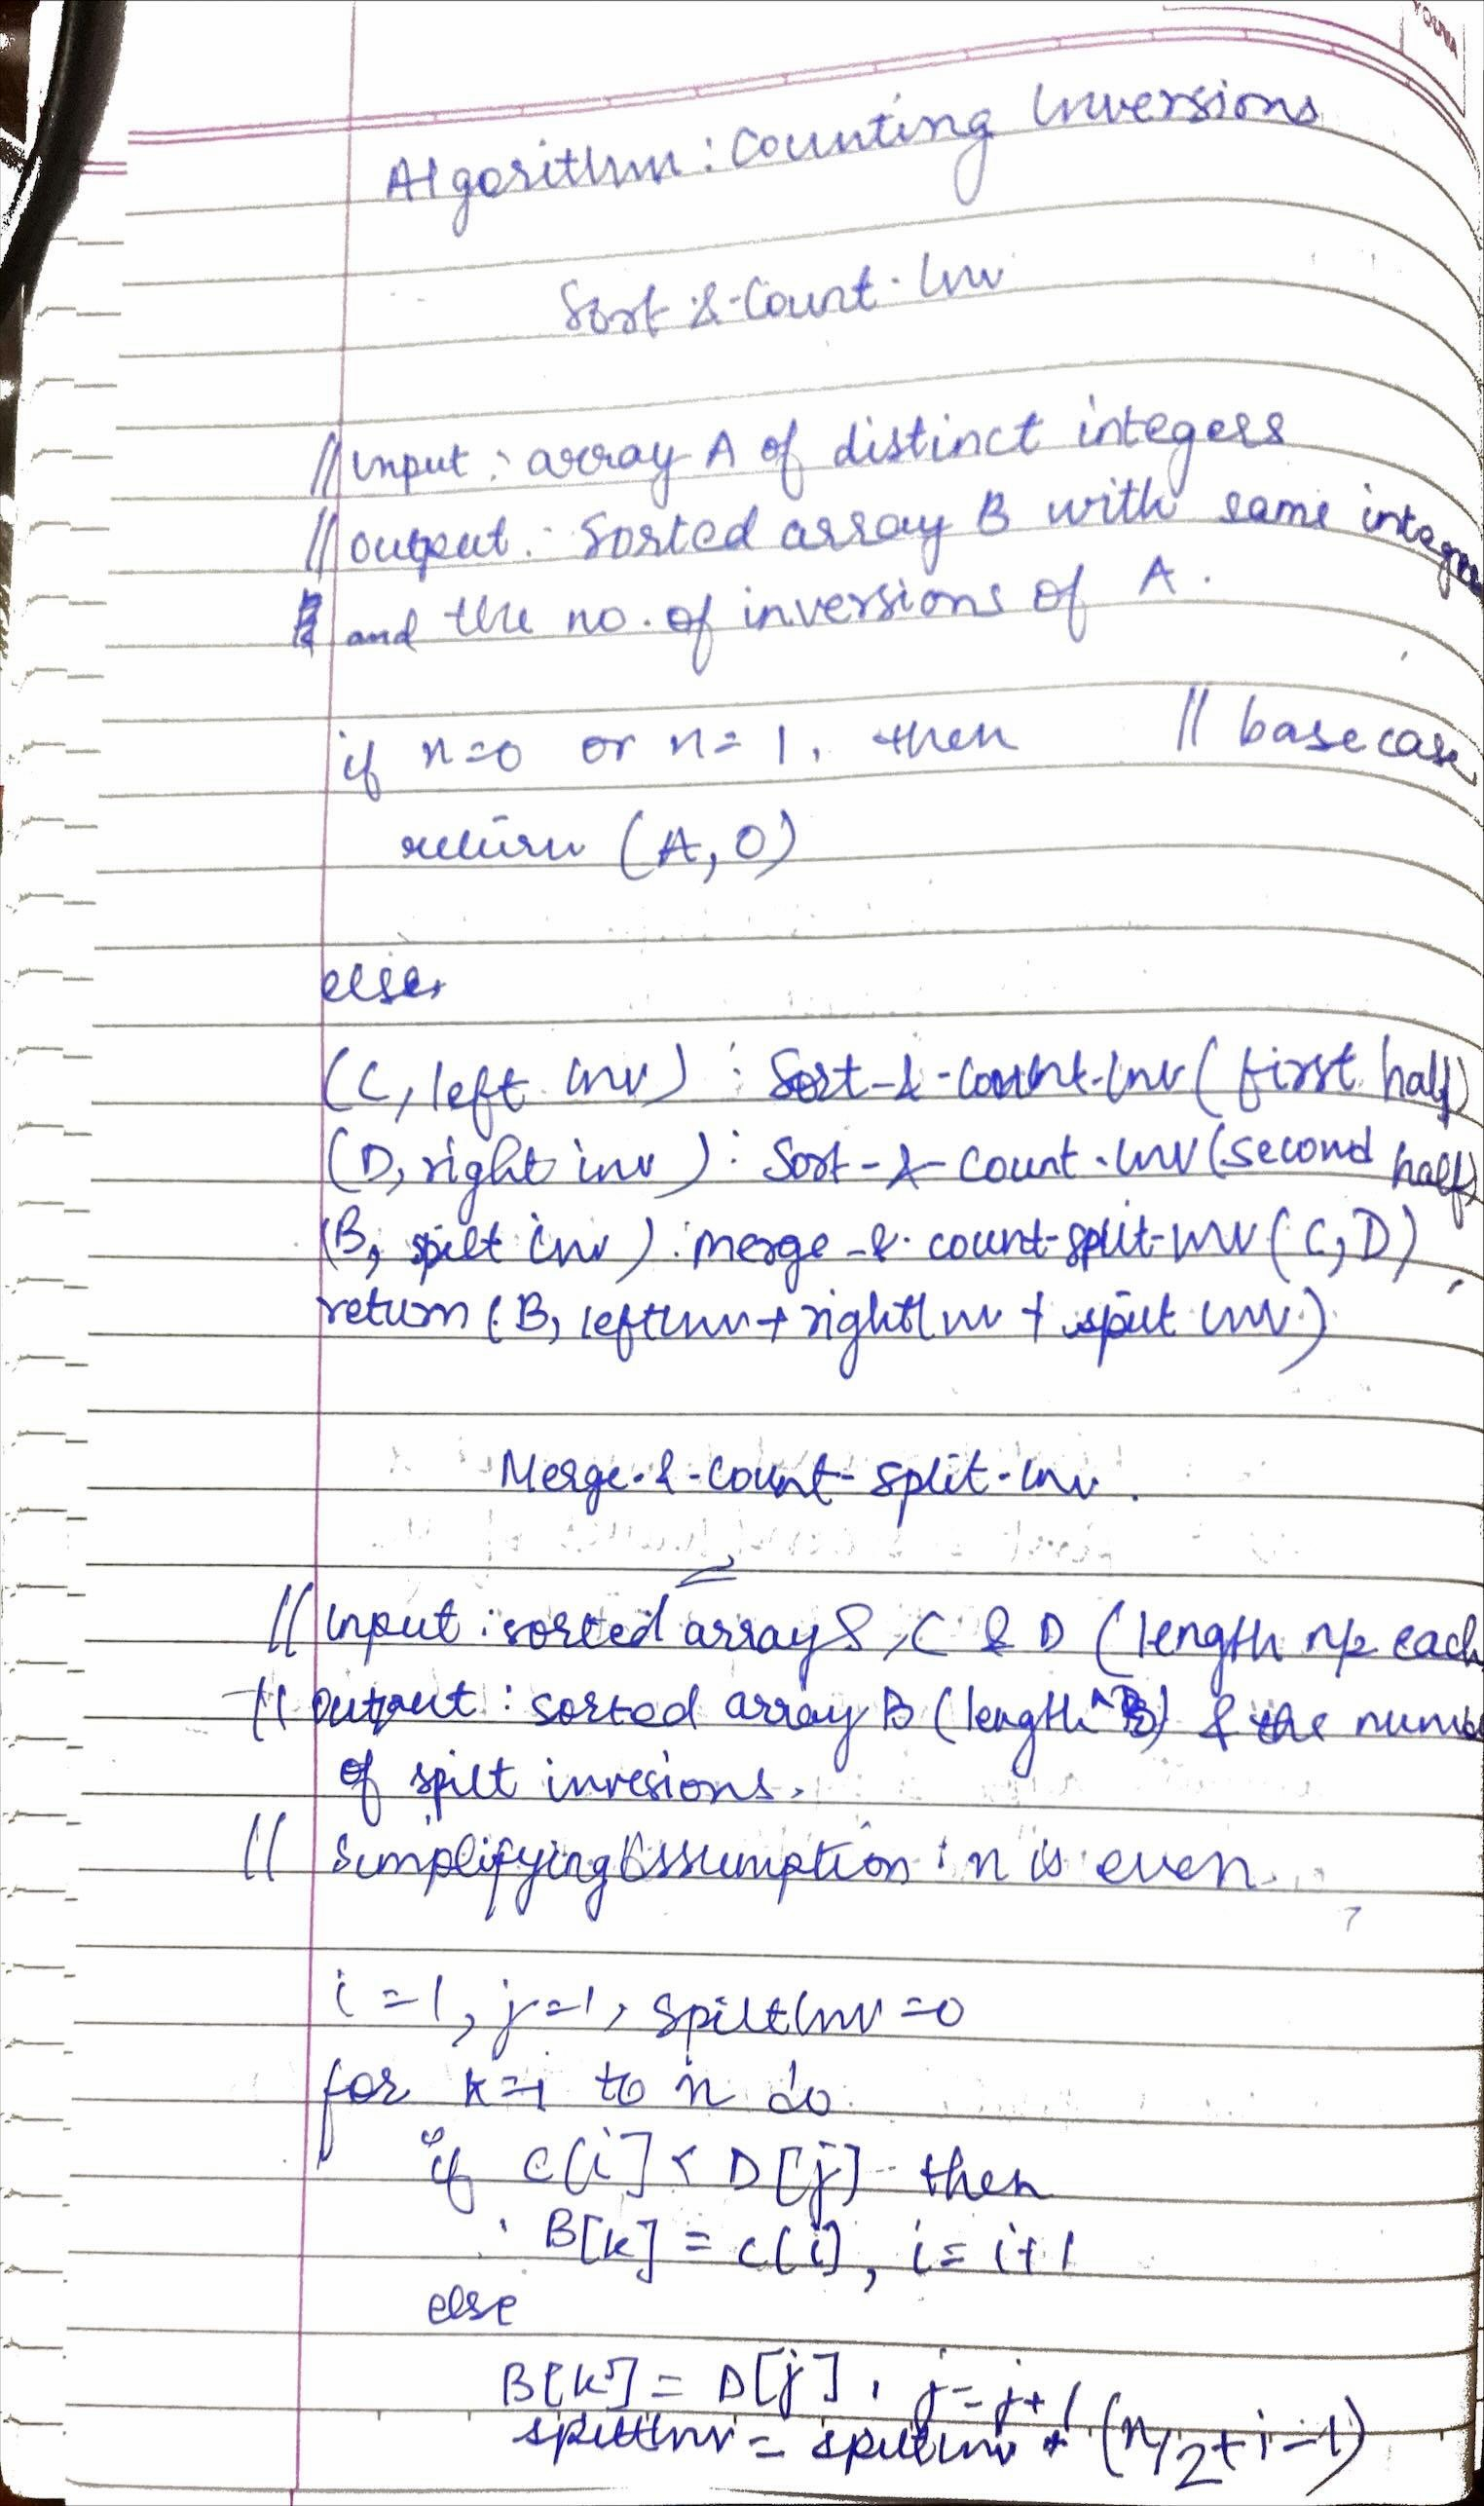 Algorithm : Counting Inversions
Sort-&-Count-Inv
// Input : array A of distinct integers
// output : Sorted array B with same
and the no. of inversions of A.
if n=0 or n=1, then // base case
return (A, 0)
else,
(C, left inv) : Sort-&-Count-Inv (first half)
(D, right inv) : Sort-&-Count-Inv (second half)
(B, spilt inv) : merge-&-count-split-inv (C, D)
return (B, leftInv + rightInv + spilt inv)
Merge-&-Count-Split-Inv.
// Input : sorted arrays, C & D (length n/2 each
// output : sorted array B (length & the numb
of spilt invesions.
// Simplifying Assumption : n is even.
i=1, j=1, spiltInv=0
for k=1 to n do
if C[i] < D[j] then
B[k] = C[i], i = i+1
else
B[k] = D[j], j = j+1
spiltInv = spiltInv + (n/2+i-1)